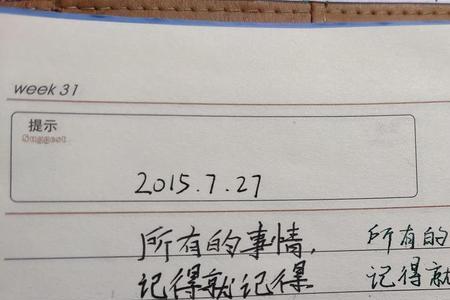 week 31
提示
Suggest
2015.7.27
所有的事情, 所有的
记得就记得 记得就